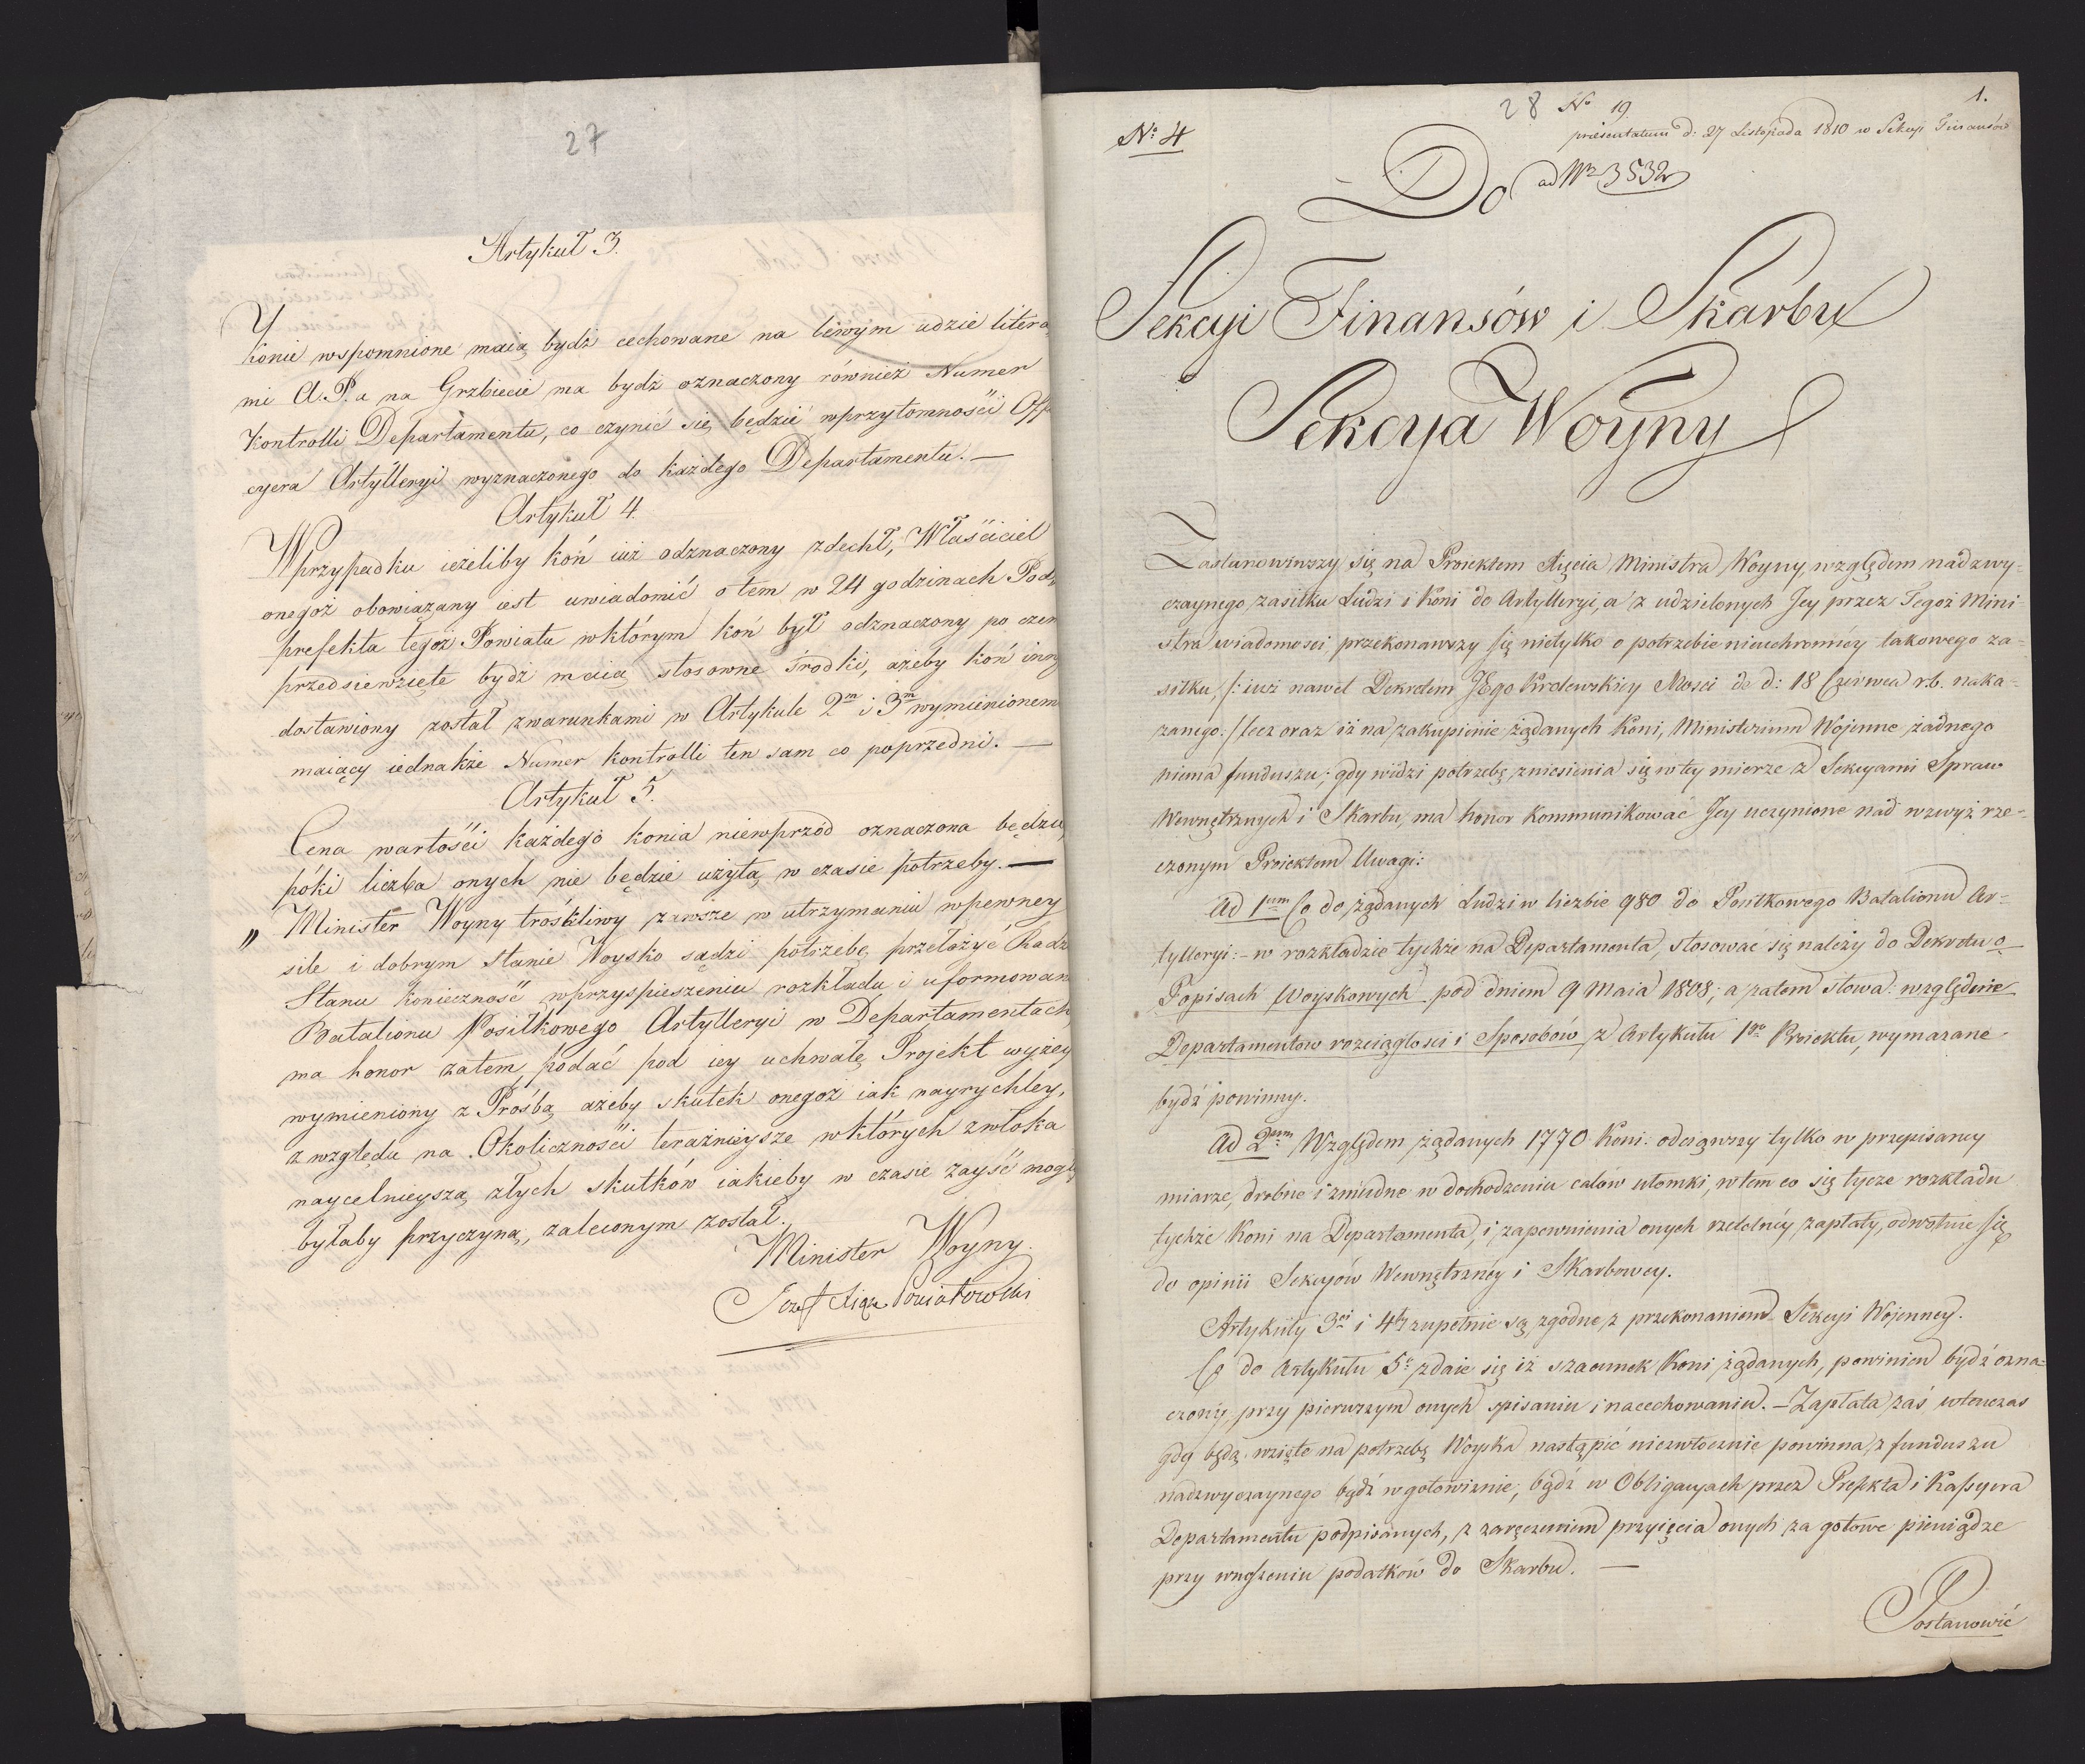 27
Artykuł 3.
Konie wspomnione maią bydź cechowane na lewym udzie litera
mi A.P. a na Grzbiecie ma bydź oznaczony również Numer
Kontrolli Departamentu, co czynić się będzie wprzytomności Offi
cyera Artylleryi wyznaczonego do każdego Departamentu. —
Artykuł 4.
Wprzypadku ieżeliby koń iuż odznaczony zdechł, Właściciel
onegoż obowiązany iest uwiadomić o tem w 24 godzinach Pod
prefekta tegoż Powiatu wktórym koń był odznaczony po czem
przedsiewzięte bydź maią stosowne środki, ażeby koń inny
dostawiony został zwarunkami w Artykule 2m i 3m wymienionem
maiący iednakże Numer kontrolli ten sam co poprzedni. —
Artykuł 5.
Cena wartości każdego konia niewprzód oznaczona będzie,
póki liczba onych nie będzie użytą w czasie potrzeby. —
" Minister Woyny troskliwy zawsze w utrzymaniu wpewney
sile i dobrym stanie Woysko sądzi potrzebę przełożyć Radzie
Stanu konieczność wprzyspieszeniu rozkładu i uformowani
Batalionu Posiłkowego Artylleryi w Departamentach
ma honor zatem, podać pod iey uchwałę Projekt wyżey
wymieniony z Prośbą ażeby skutek onegoż iak nayrychley,
zwzględu na Okoliczności teraźnieysze wktórych zwłoka
naycelnieyszą złych skutków iakieby w czasie zayść mogły
byłaby przyczyną, zaleconym został.
Minister Woyny.
Józef Xiąże Poniatowski
28 No 19
1.
No 4
præsentatum d: 27 Listopada 1810 w Sekcyi Finansów
Do
ad Nr 3532
Sekcyi Finansów i Skarbu
Sekcya Woyny
Zastanowiwszy się nad Proiektem Xięcia Ministra Woyny, względem nadzwy-
czaynego zasiłku Ludzi i Koni do Artylleryi, a z udzielonych Jey przez Tegoż Mini-
stra wiadomości, przekonawszy się nietylko o potrzebie nieuchronnéy takowego za-
siłku, /: iuż nawet Dekretem JEgo Krolewskiey Mosci de d: 18 Czerwca r.b. naka-
zanego :/ lecz oraz iż na zakupienie żądanych Koni, Ministerium Wojenne żadnego
niema funduszu; gdy widzi potrzebę zniesienia się w tey mierze z Sekcyami Spraw
Wewnętrznych i Skarbu, ma honor kommunikować Jey uczynione nad wzwyż rze-
czonym Proiektem Uwagi:
Ad 1um Co do żądanych Ludzi w liczbie 980 do Posiłkowego Batalionu Ar-
tylleryi: - w rozkładzie tychże na Departamenta, stosować się należy do Dekretu o
Popisach Woyskowych pod dniem 9 Maia 1808; a zatem słowa: względnie
Departamentow rozciągłości i Sposobów, z Artykułu 1go Proiektu, wymazane
bydź powinny.
Ad 2um Względem żądanych 1770 Koni: odciąwszy tylko w przepisaney
miarze, drobne i żmudne w dochodzeniu calów ułomki, w tem co się tycze rozkładu
tychże Koni na Departamenta, i zapewnienia onych rzetelnéy zapłaty, odwołuie się
do opinii Sekcyów Wewnętrznéy i Skarbowey.
Artykuły 3ci i 4ty zupełnie są zgodne z przekonaniem Sekcyi Wojenney.
Co do Artykułu 5o zdaie się iż szacunek Koni żądanych, powinien bydź ozna-
czony, przy pierwszym onych spisaniu i nacechowaniu. — Zapłata zaś wtenczas
gdy będą wzięte na potrzebę Woyska nastąpić niezwłocznie powinna, z funduszu
nadzwyczaynego bądź w gotowiznie, bądź w Obligacyach przez Prefekta i Kassyera
Departamentu podpisanych, z zaręczeniem przyięcia onych za gotowe pieniądze
przy wnoszeniu podatków do Skarbu. —
Postanowić